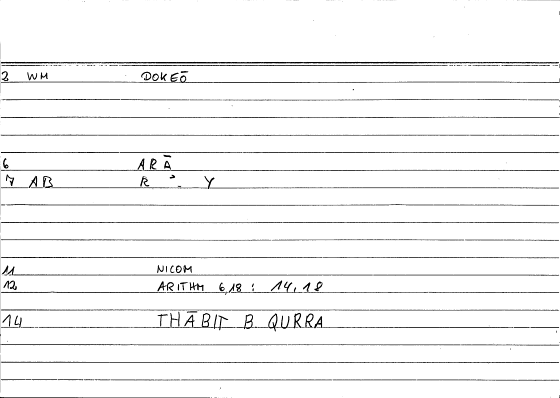 2 WM DOKEŌ
6 ARĀ
7 AB R ʾ. Y
11 NICOM
12 ARITHM 6,18 : 14,18
14 THĀBIT B. QURRA